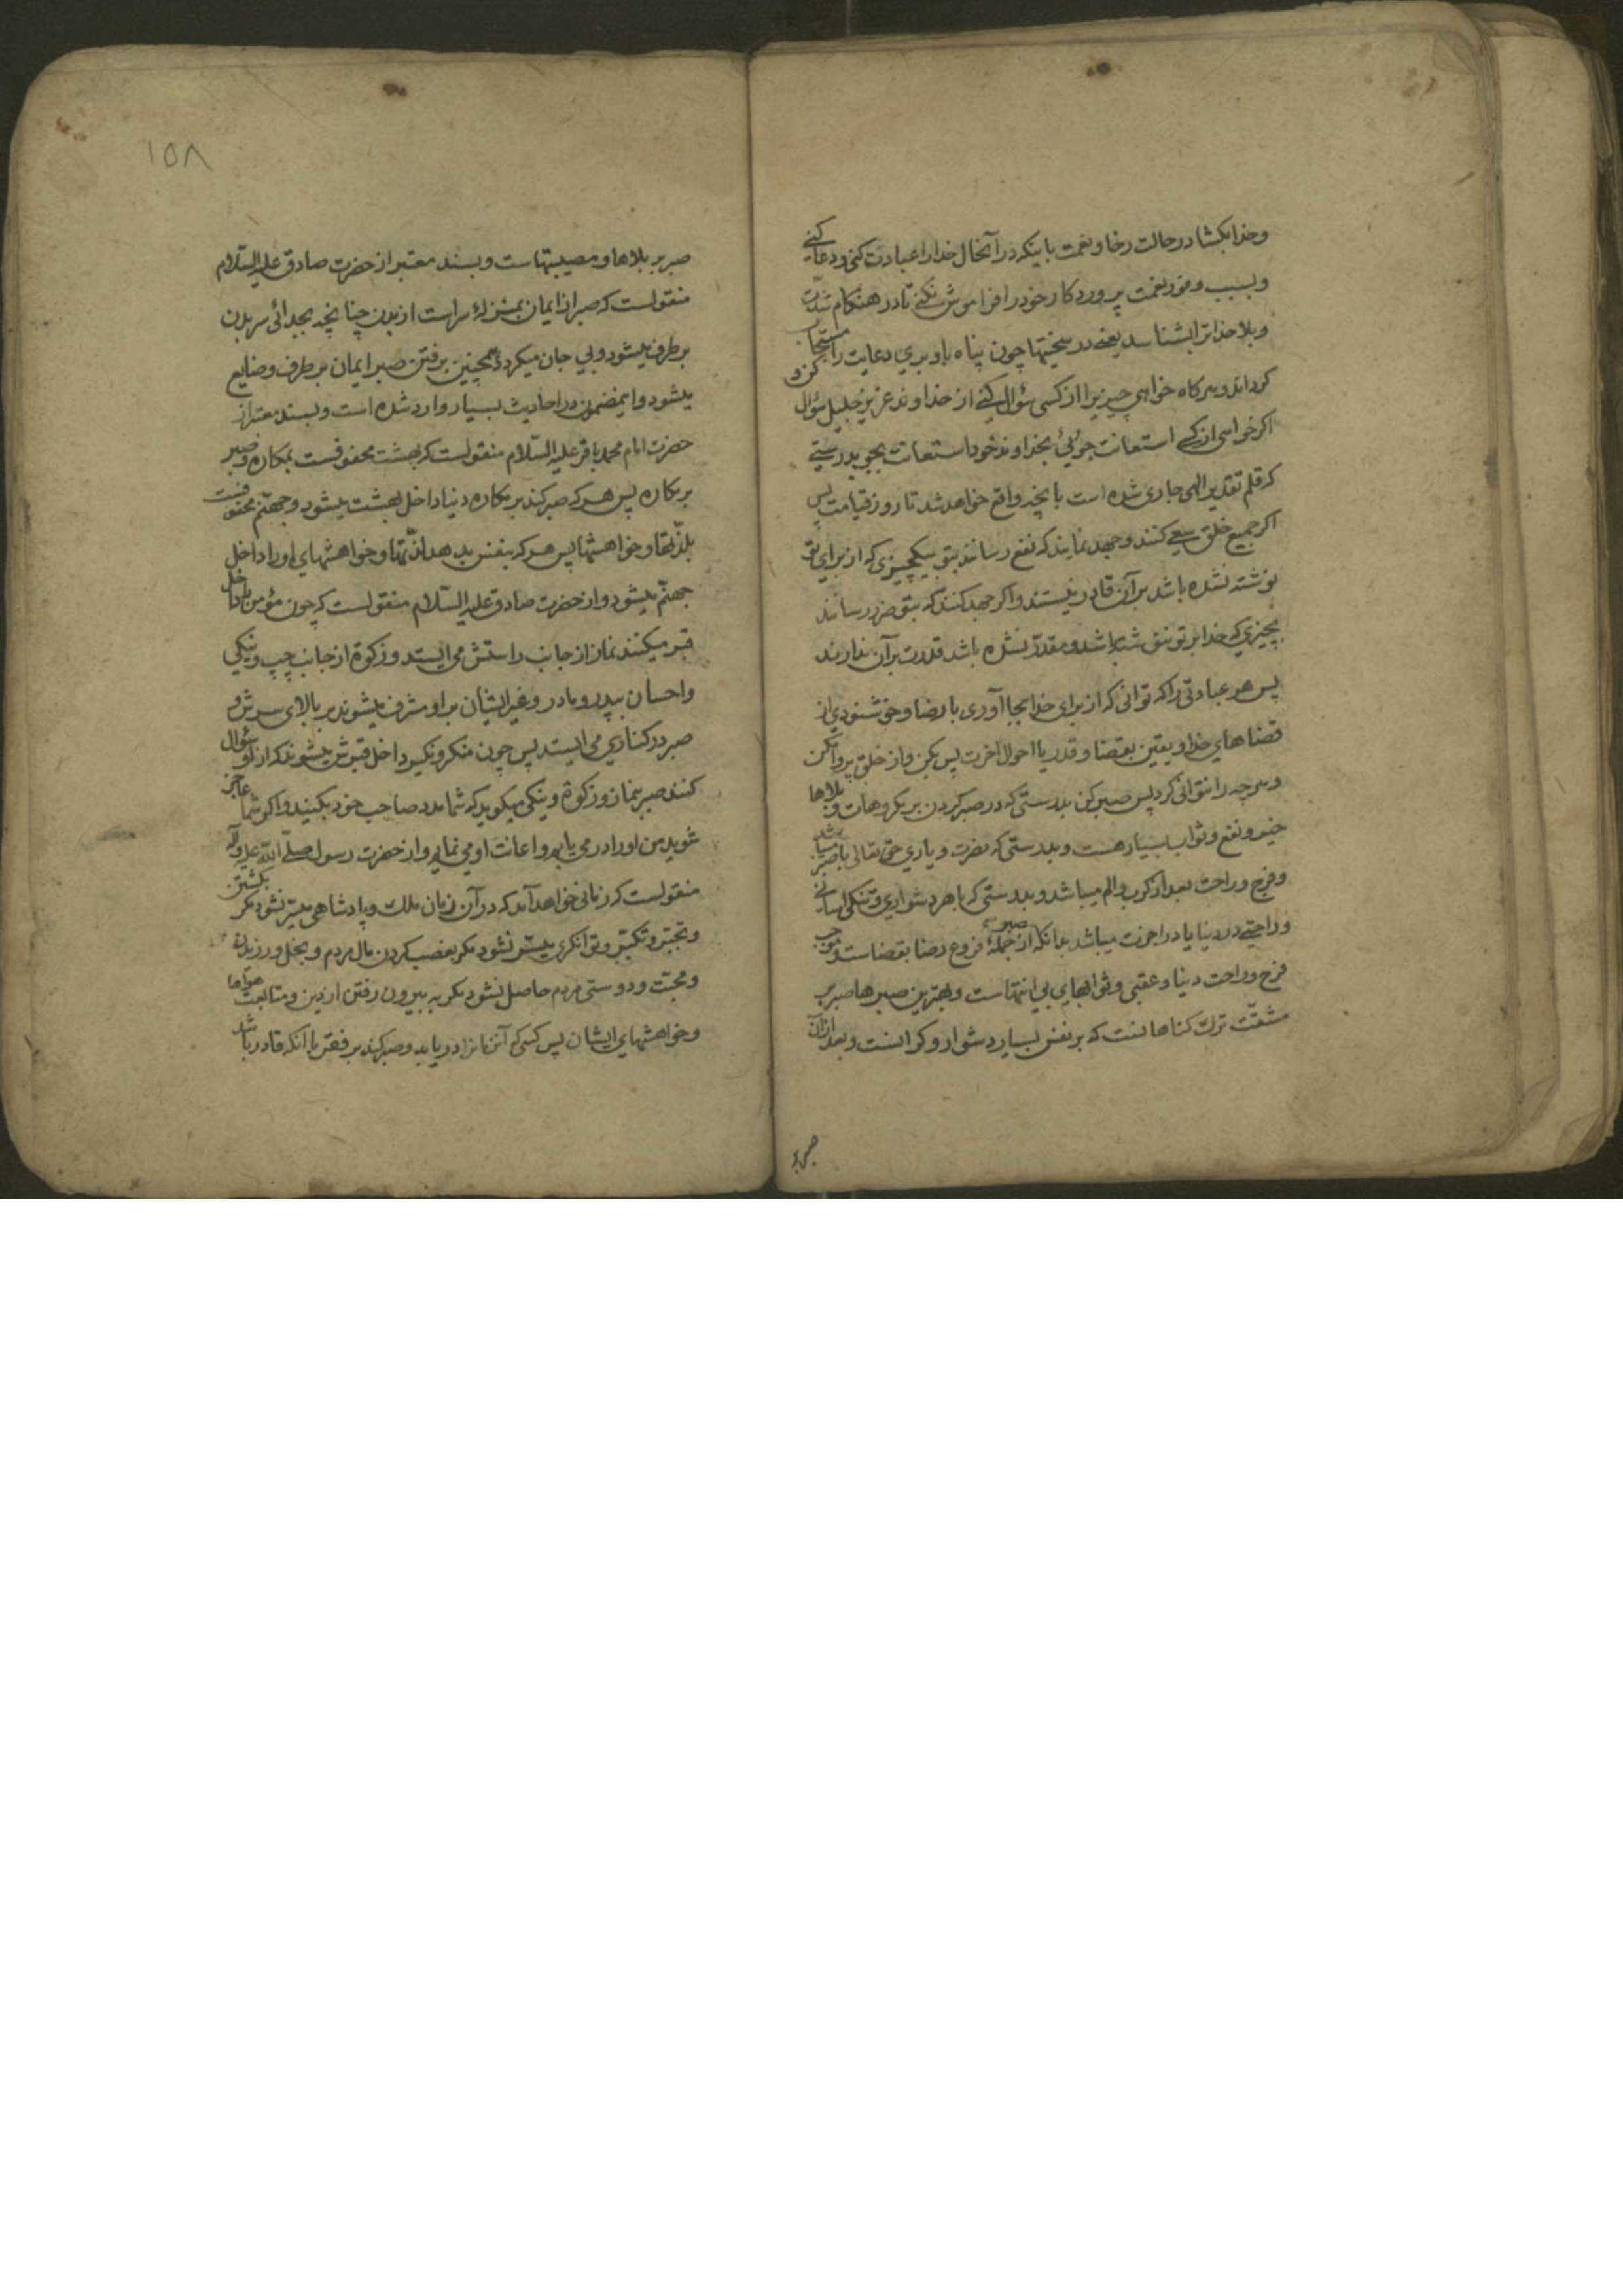 و خدا بکشا در حالت رخا و نعمت باینکه در آنحال خدا را عبادت کنی و دعا کنی
و بسبب وفور نعمت پروردکار خود را فراموش نکنی تا در هنکام شدّت
و بلا خدا ترا بشناسد یعنی در سختیها چون پناه باو بری دعایت را مستجاب
کرداند و هرکاه خواهی چیزیرا از کسی سؤال کنی از خداوند عزیز جلیل سؤال کن و
اکر خواهی از کسی استعانت جوئی بخداوند خود استعانت بجو بدرستی
که قلم تقدیر الهی جاری شده است بانچه واقع خواهد شد تا روز قیامت پس
اکر جمیع خلق سعی کنند و جهد نمایند که نفع رسانند بتو بیکچیزی که از برای تو
نوشته نشده باشد بر آن قادر نیستند و اکر جهد کنند که بتو ضرر رسانند
بچیزی که خدا بر تو ننوشته باشد و مقدّر نشده باشد قدرت بر آن ندارند
پس هر عبادتی را که توانی که از برای خدا بجا آوری با رضا و خوشنودی از
قضاهای خدا و یقین بقضا و قدر یا احوال اخرت پس بکن و از خلق پروا مکن
و هرچه را نتوانی کرد پس صبر کن بدرستی که در صبر کردن بر مکروهات و بلاها
خیر و نفع و ثواب بسیار هست و بدرستی که نصرت و یاری حق تعالی با صبر میباشد
و فرج و راحت بعد از کرب و الم میباشد و بدرستی که با هر دشواری و تنکی اسانی
و راحتی در دنیا یا در اخرت میباشد بدانکه از جملهٔ فروع رضا بقضا صبر است و موجب
فرح و راحت دنیا و عقبی و ثوابهای بی انتهاست و بهترین صبرها صبر بر
مشقّت ترک کناهانست که بر نفس بسیار دشوار و کرانست و بعد از آن
صبر بر
۱۵۸
صبر بر بلاها و مصیبتهاست و بسند معتبر از حضرت صادق علیه السّلام
منقولست که صبر از ایمان بمنزلهٔ سر است از بدن چنانچه بجدائی سر بدن
برطرف میشود و بی جان میکردد همچنین برفتن صبر ایمان برطرف و ضایع
میشود و اینمضمون در احادیث بسیار وارد شده است و بسند معتبر از
حضرت امام محمد باقر علیه السّلام منقولست که بهشت محفوفست بمکاره و صبر
بر مکاره پس هر که صبر کند بر مکاره دنیا داخل بهشت میشود و جهنّم محفوفست
بلذّتها و خواهشها پس هر که بنفس بدهد لذّتها و خواهشهای او را داخل
جهنّم میشود و از حضرت صادق علیه السّلام منقولست که چون مؤمن را داخل
قبر میکنند نماز از جانب راستش می ایستد و زکوة از جانب چپ و نیکی
و احسان بپدر و مادر و غیر ایشان بر او مشرف میشوند بر بالای سرش و
صبر در کناری می ایستد پس چون منکر و نکیر داخل قبرش میشوند که از او سؤال
کنند صبر بنماز و زکوة و نیکی میکوید که شما مدد صاحب خود بکنید و اکر شما عاجز
شوید من او را در می یابم و اعانت او می نمایم و از حضرت رسول صلّی الله علیه و آله
منقولست که زمانی خواهد آمد که در آن زمان ملک و پادشاهی میسّر نشود مکر بکشتن
و تجبّر و تکبّر و توانکری میسّر نشود مکر بغصب کردن مال مردم و بخل ورزیدن
و محبّت و دوستی مردم حاصل نشود مکر به بیرون رفتن از دین و متابعت هواها
و خواهشهای ایشان پس کسی که آنزمانرا دریابد و صبر کند بر فقر با آنکه قادر باشد